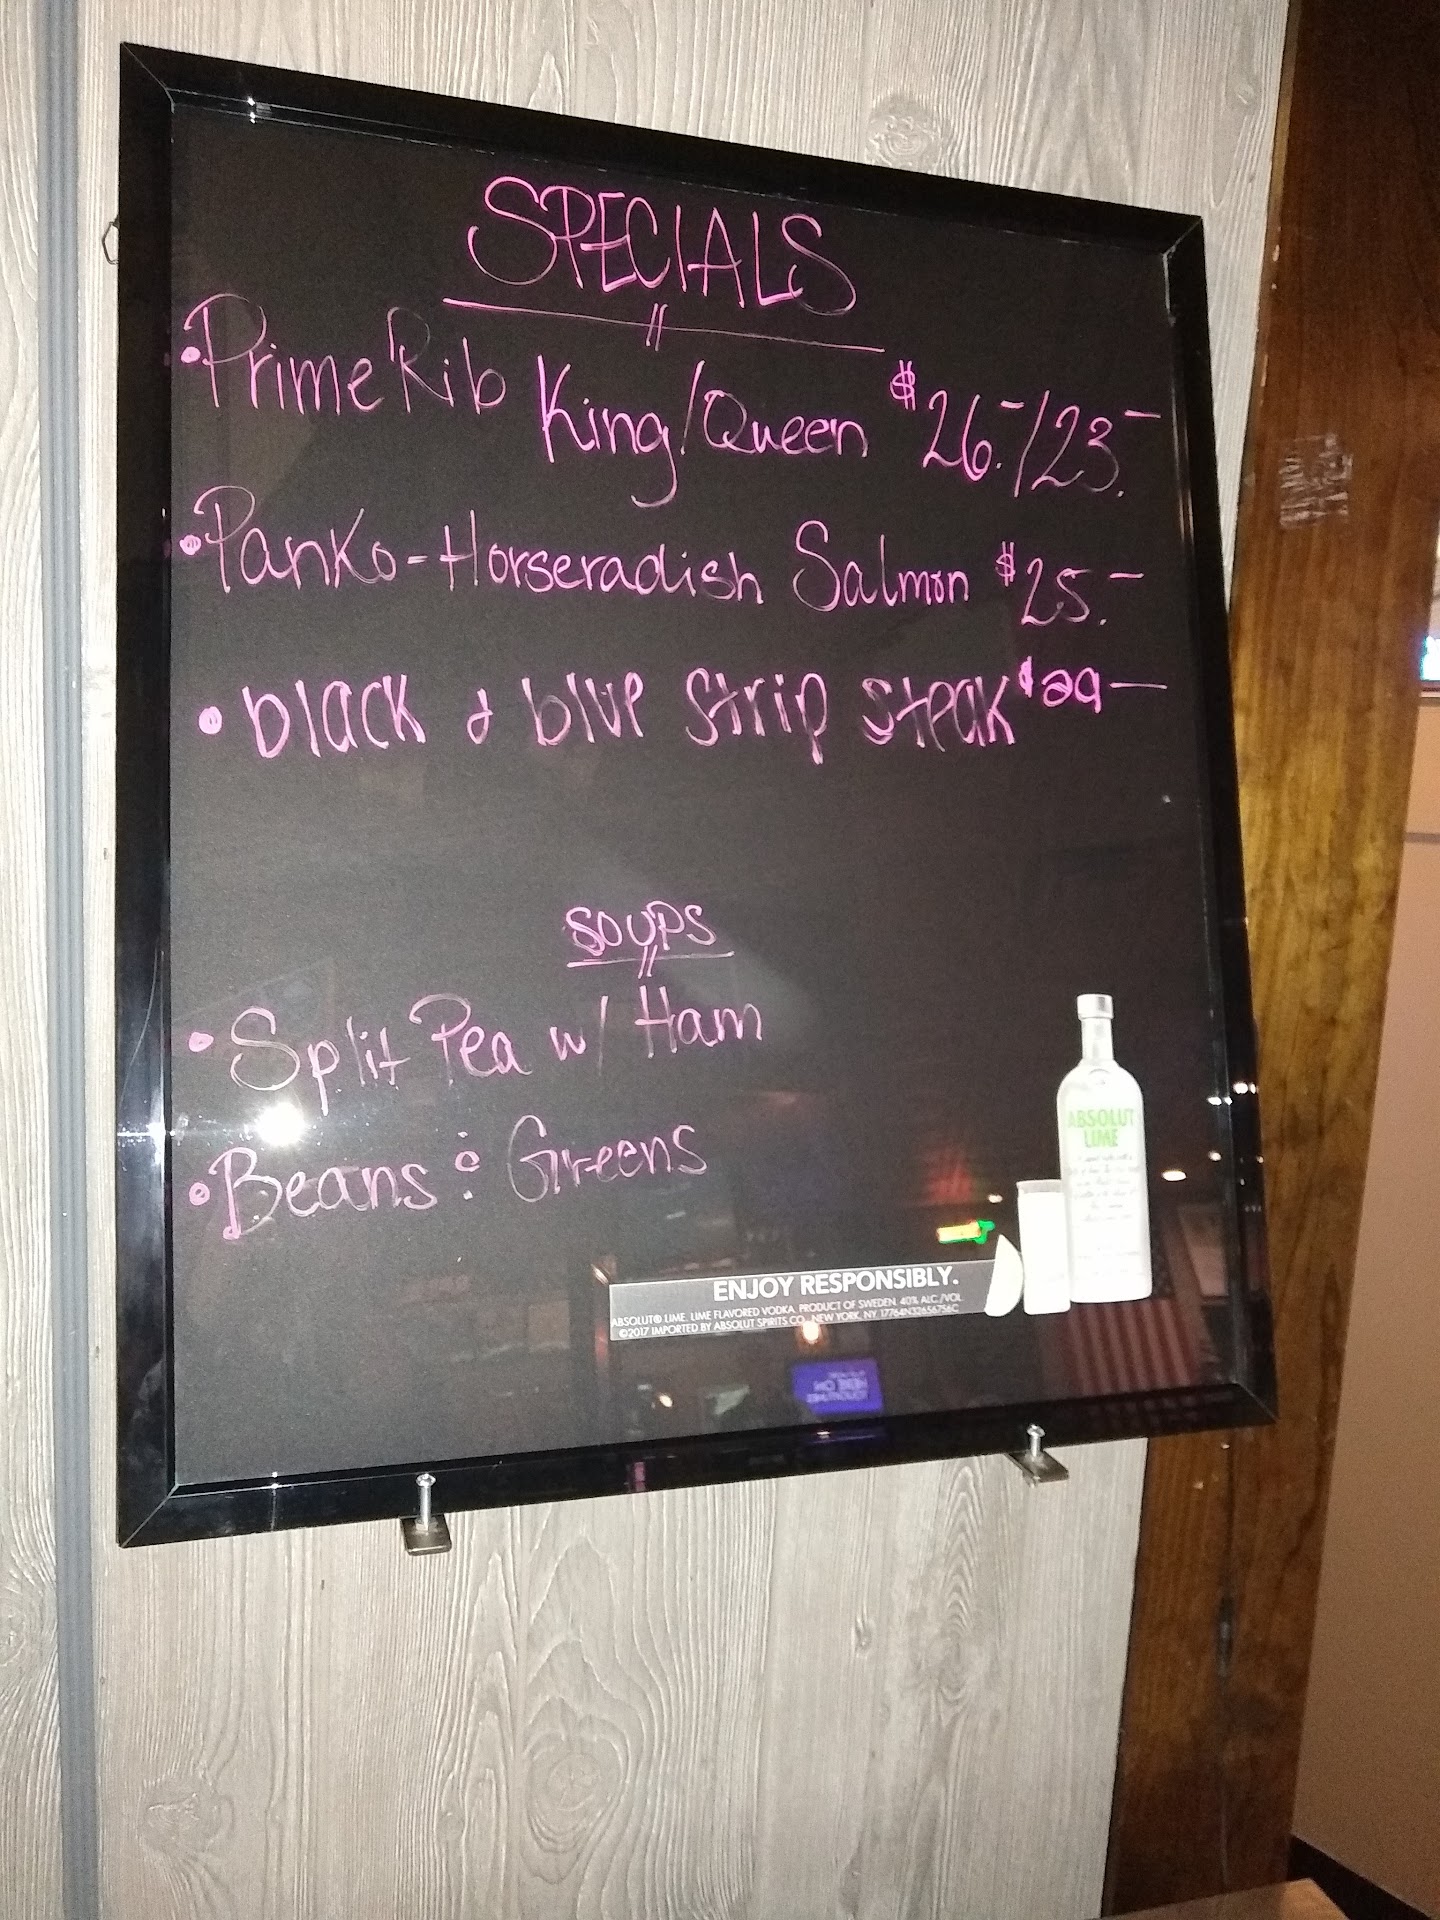 SPECIALS
• Prime Rib King/Queen $26.-/23.-
• Panko-Horseradish Salmon $25.-
• black & blue strip steak $29-
SOUPS
• Split Pea w/ Ham
• Beans & Greens
ABSOLUT
LIME
ENJOY RESPONSIBLY.
ABSOLUT® LIME. LIME FLAVORED VODKA. PRODUCT OF SWEDEN. 40% ALC./VOL
©2017 IMPORTED BY ABSOLUT SPIRITS CO., NEW YORK, NY 17764N32656756C